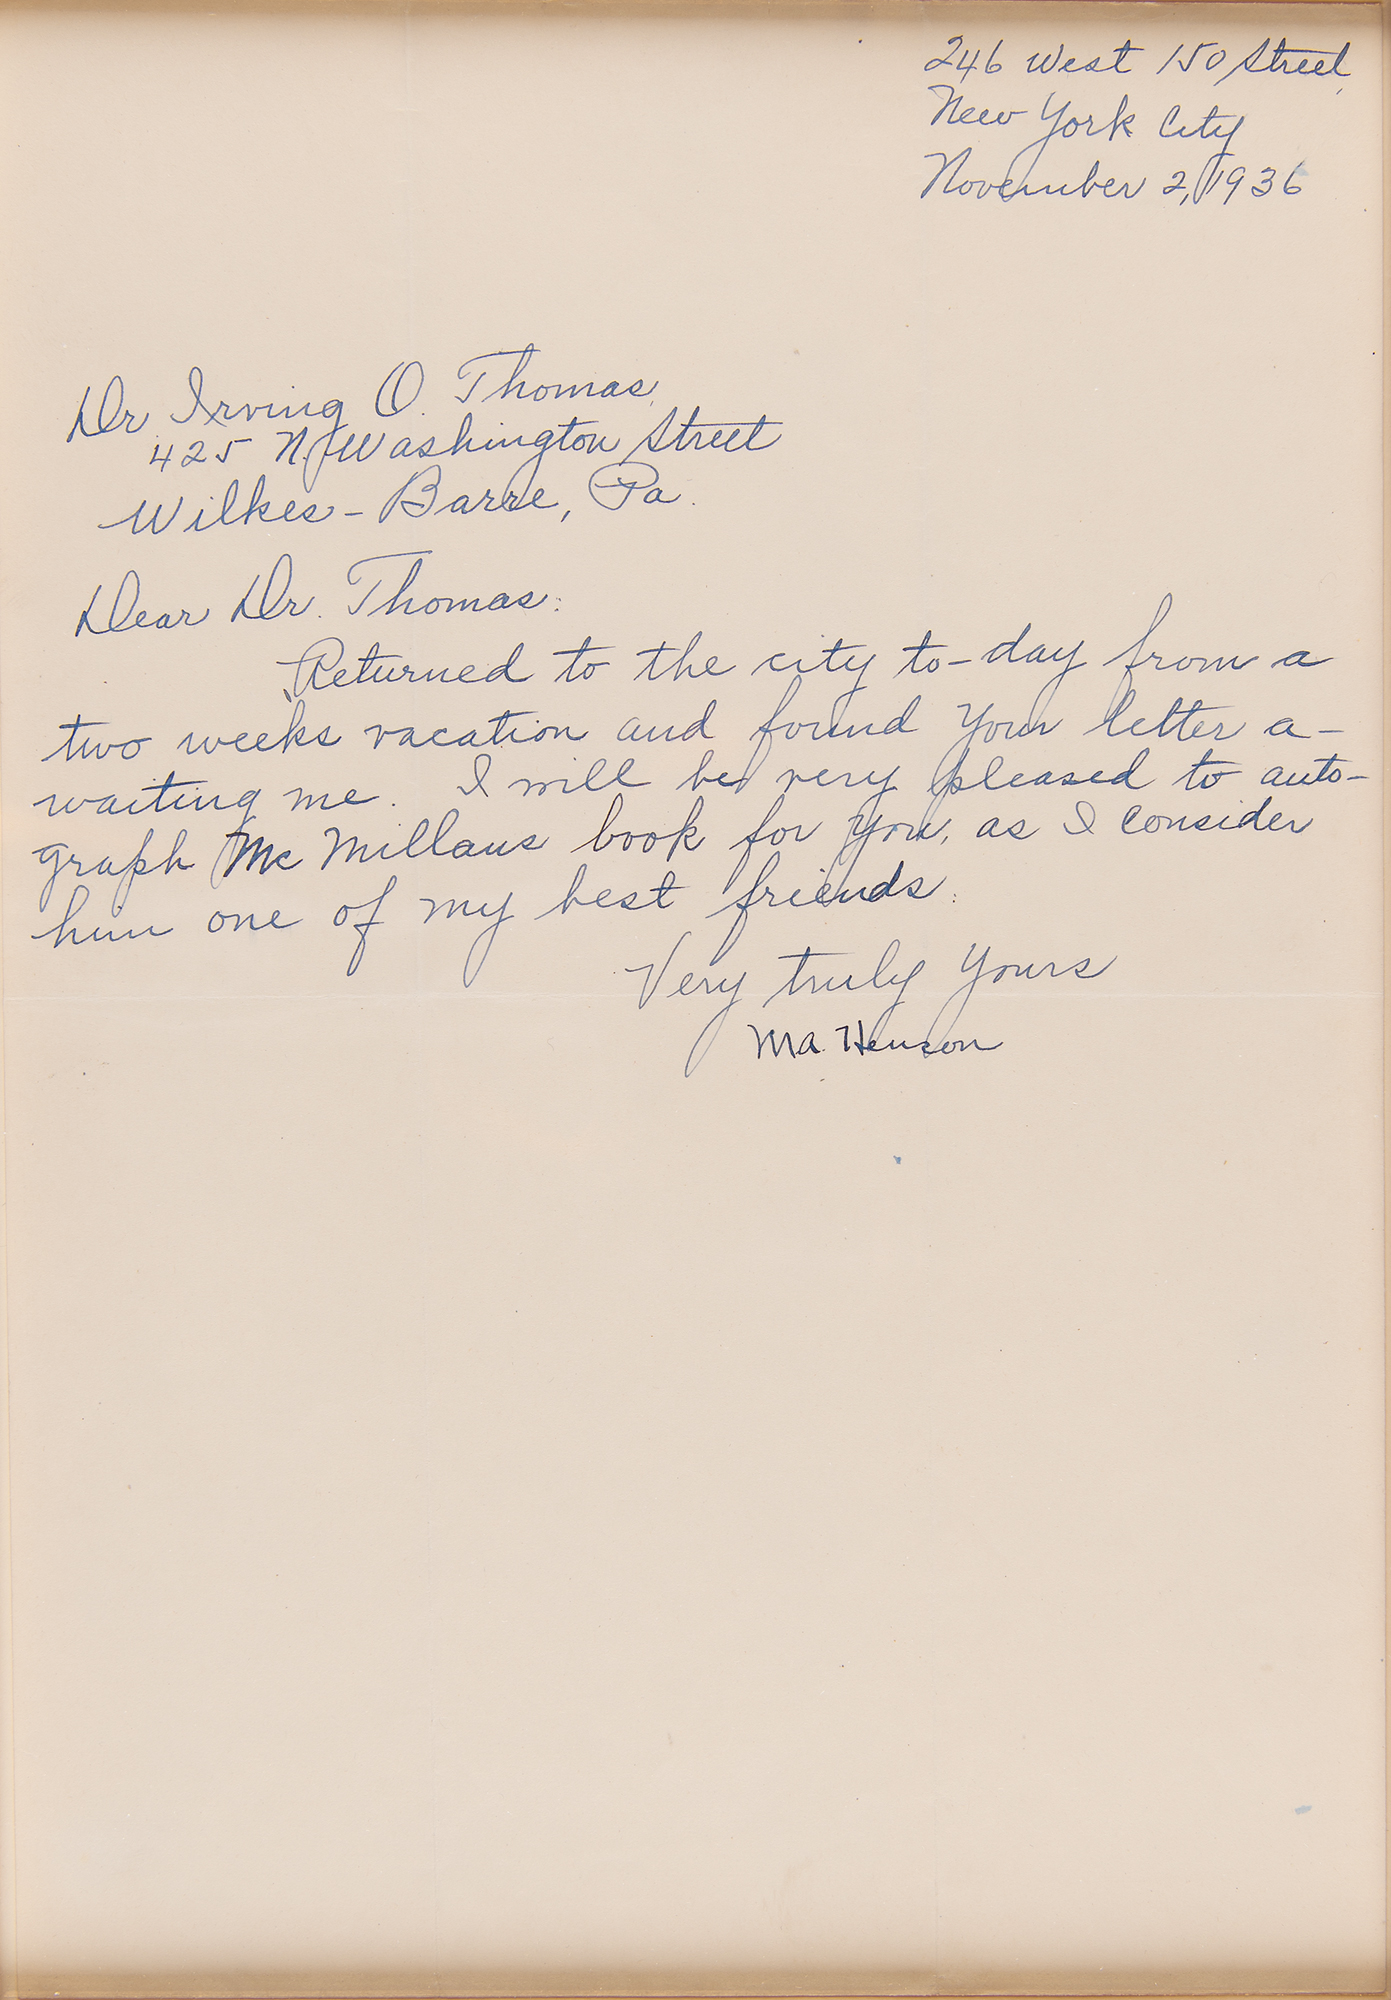 246 West 150 Street,
New York City
November 2, 1936
Dr Irving O. Thomas,
425 N. Washington Street
Wilkes-Barre, Pa.
Dear Dr. Thomas:
Returned to the city to-day from a
two weeks vacation and found your letter a-
waiting me. I will be very pleased to auto-
graph Mc Millans book for you, as I consider
him one of my best friends.
Very truly yours
M.A. Henson